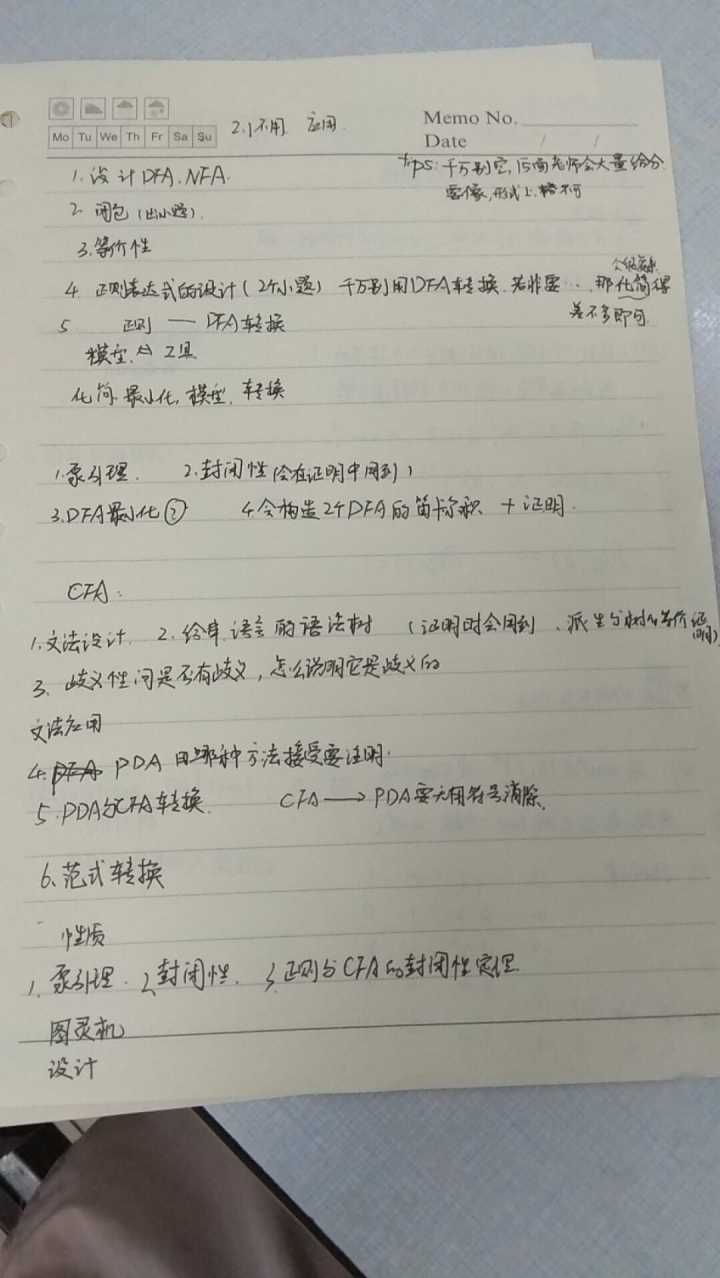 Mo Tu We Th Fr Sa Su
2.1不用 应用
Memo No.
Date / /
*ps: 千万别空,后面老师会大量给分
要像,形式上
1. 设计DFA.NFA.
2. 闭包(出小题).
3. 等价性
4. 正则表达式的设计(2个小题) 千万别用DFA转换. 若非要… 那化简得
差不多即可
5 正则 — DFA转换
模型 工具
化简 最小化, 模型, 转换
1.泵引理. 2.封闭性(会在证明中用到)
3.DFA最小化② 4.会构造2个DFA的笛卡尔积 + 证明.
CFA:
1.文法设计. 2. 给串,语言的语法树 (证明时会用到、派生与树的等价证明)
3. 歧义性问是否有歧义,怎么说明它是歧义的
文法应用
4. PDA 用哪种方法接受要注明.
5.PDA与CFA转换. CFA→PDA要无用符号消除.
6.范式转换
性质
1.泵引理. 2.封闭性. 3.正则与CFA的封闭性定理
图灵机
设计